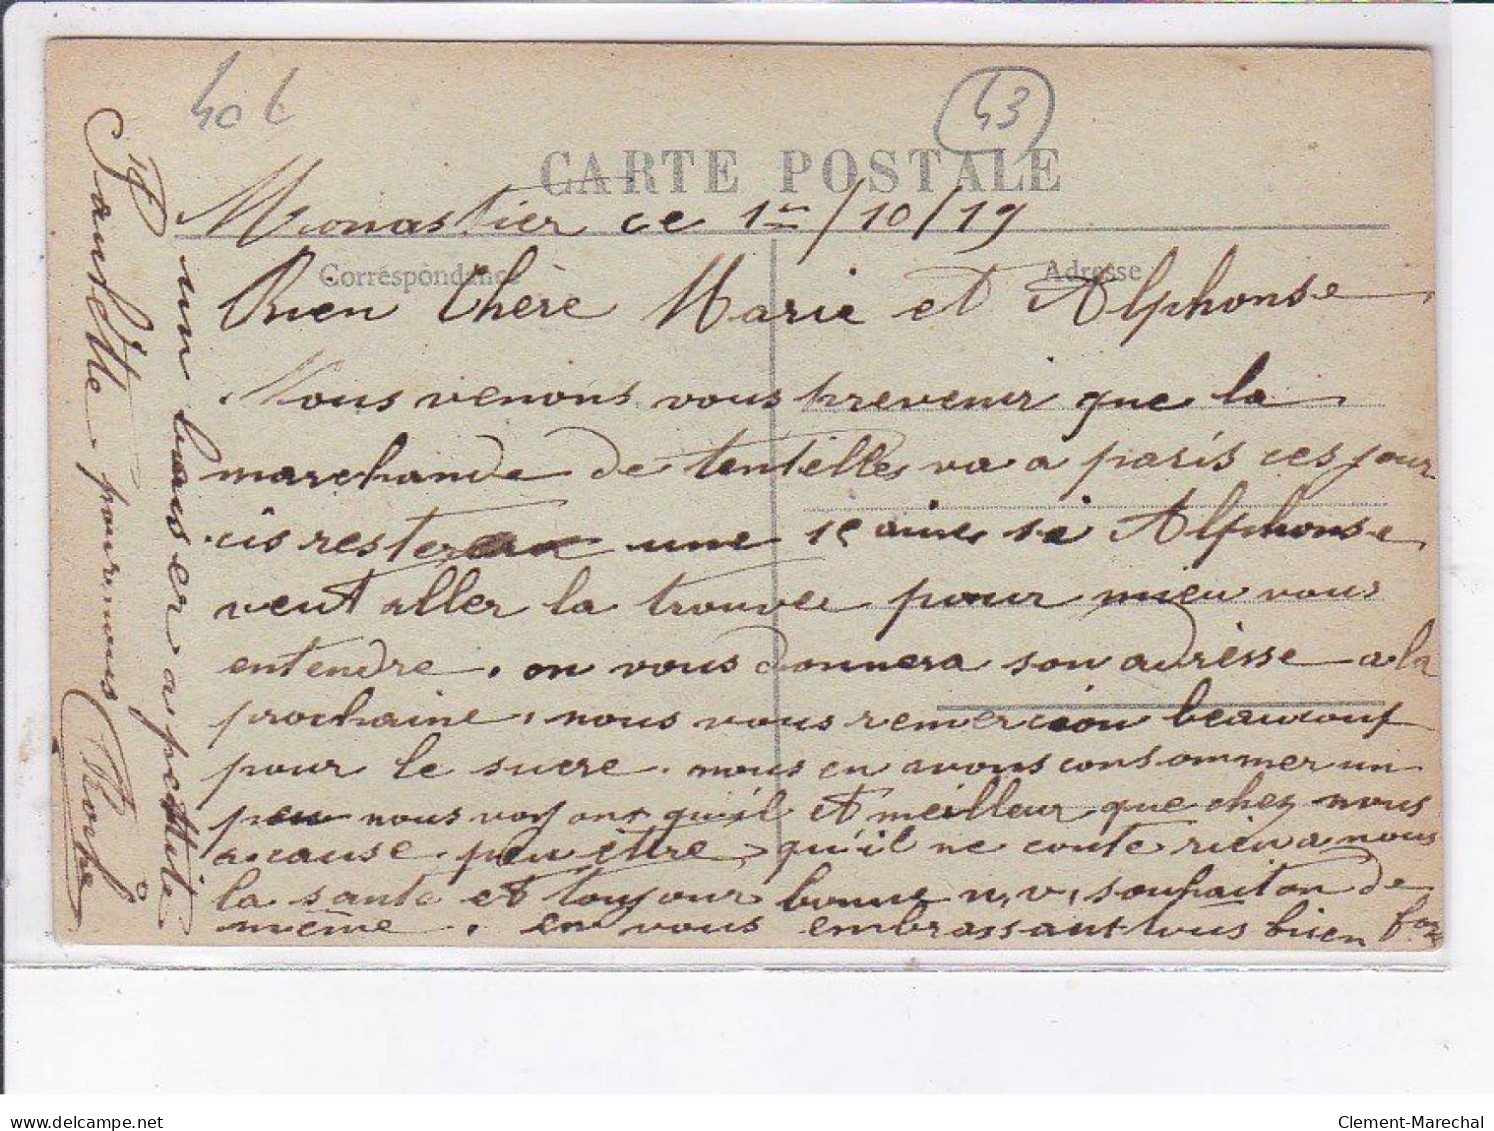 40 t
43
CARTE POSTALE
Monastier ce 1er/10/19
Correspondance
Adresse
Bien Chère Marie et Alphonse
Nous venons vous prevenir que la
marchande de lentilles va a paris ces jour
cis rester une 15aine si Alphonse
veut aller la trouver pour mieu vous
entendre. on vous donnera son adrèsse a la
prochaine, nous vous remercion beaucoup
pour le sucre. nous en avons consommer un
peu nous voyons qu'il et meilleur que chez nous
a cause peu ettre, qu'il ne coute rien a nous
la santé et toujour bonne n, v, souhaiton de
même. en vous embrassant tous bien fort
un baiser a petite
Paulette pour nous
Roche
Clement-Marechal
delcampe.net